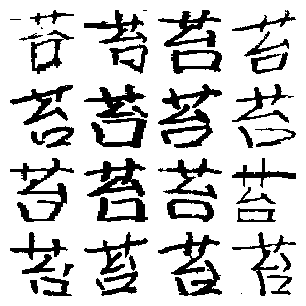 苔苔苔苔
苔苔苔苔
苔苔苔苔
苔苔苔苔